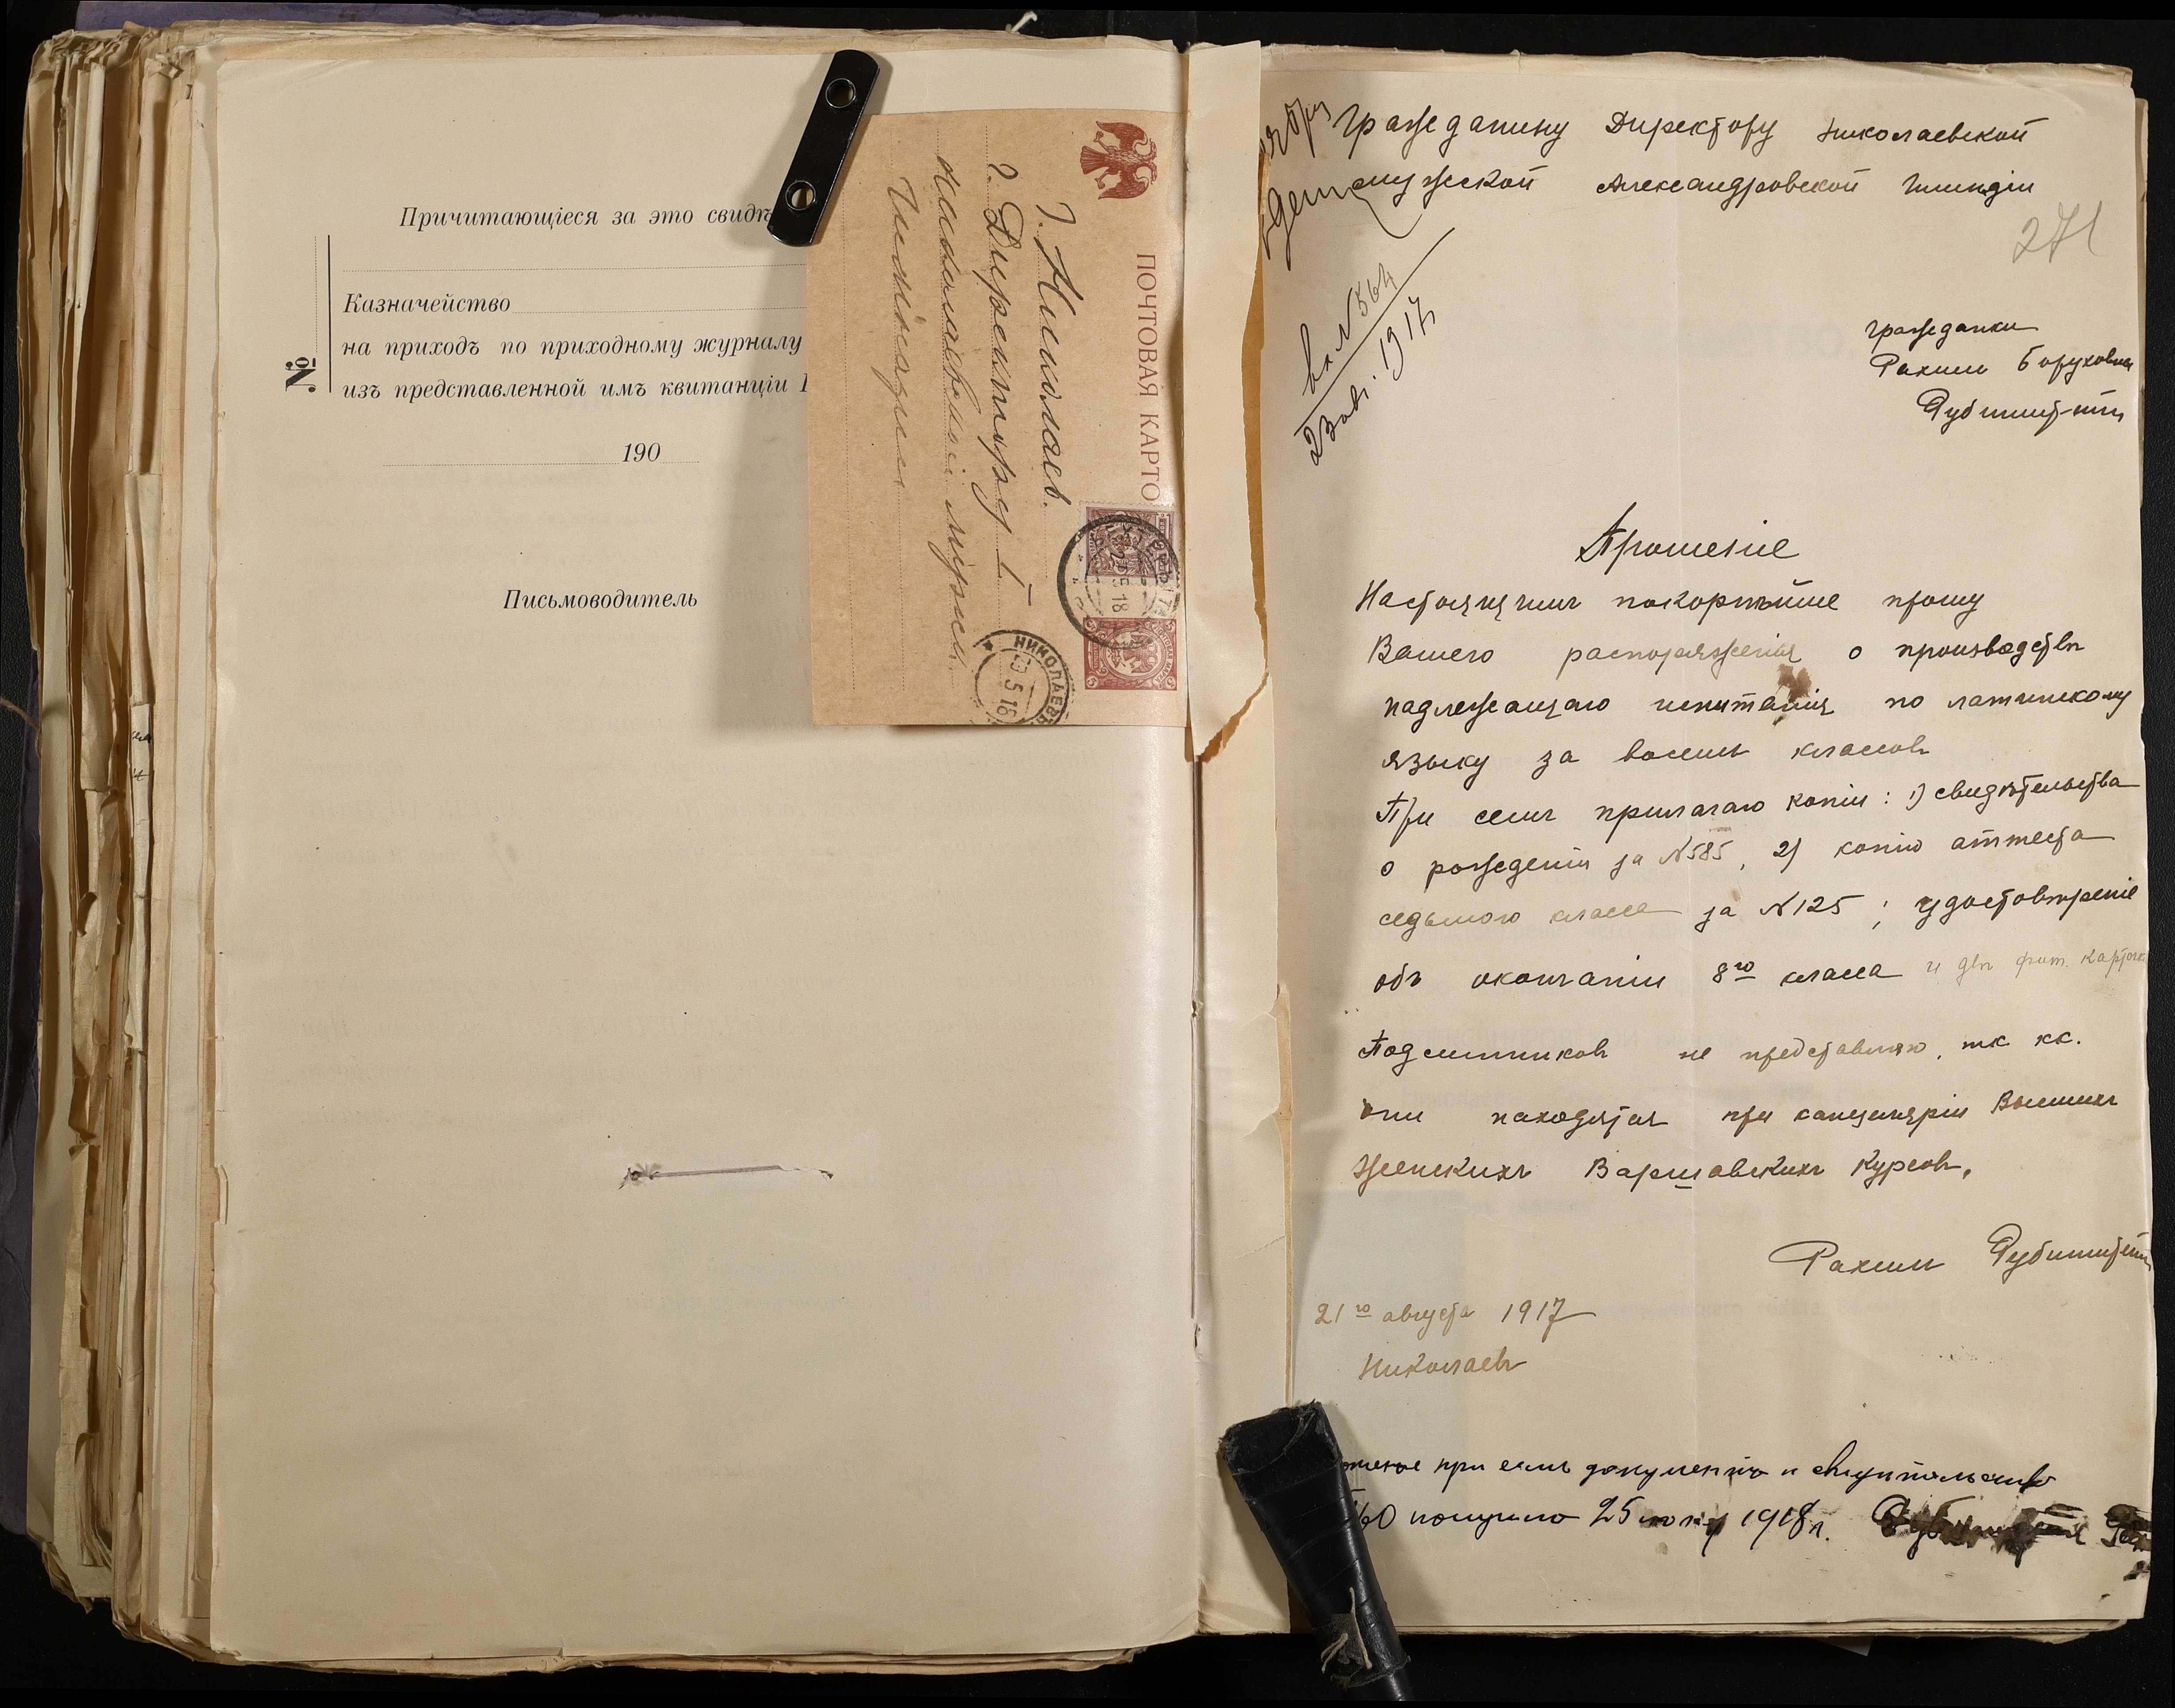 Причитающіеся за это свидѣ
Казначейство
на приходъ по приходному журналу
изъ представленной имъ квитанціи
№
190
Письмоводитель
ПОЧТОВАЯ КАРТО
г. Николаев.
г. Директору I
Николаевской мужск.
Гимназии
НИКОЛАЕВЪ
3 5 18
Гражданину Директору Николаевской
мужской Александровской Гимназіи
271
вх. №564
23 авг. 1917
гражданки
Рахили Боруховны
Рубинштейнъ
Прошеніе
Настоящимъ покорнѣйше прошу
Вашего распоряженія о производствѣ
надлежащаго испытанія по латинскому
языку за восемь классовъ
При семъ прилагаю копіи: 1) свидѣтельства
о рожденіи за №585, 2) копію аттеста
седьмого класса за №125; удостовѣреніе
объ окончаніи 8го класса и двѣ фот. карточки
Подлинниковъ не представляю, тк кк.
они находятся при канцеляріи Высшихъ
Женскихъ Варшавскихъ Курсовъ.
Рахиль Рубинштейнъ
21го августа 1917
Николаевъ
при семъ документы и свидѣтельство
получила 25 1918г.